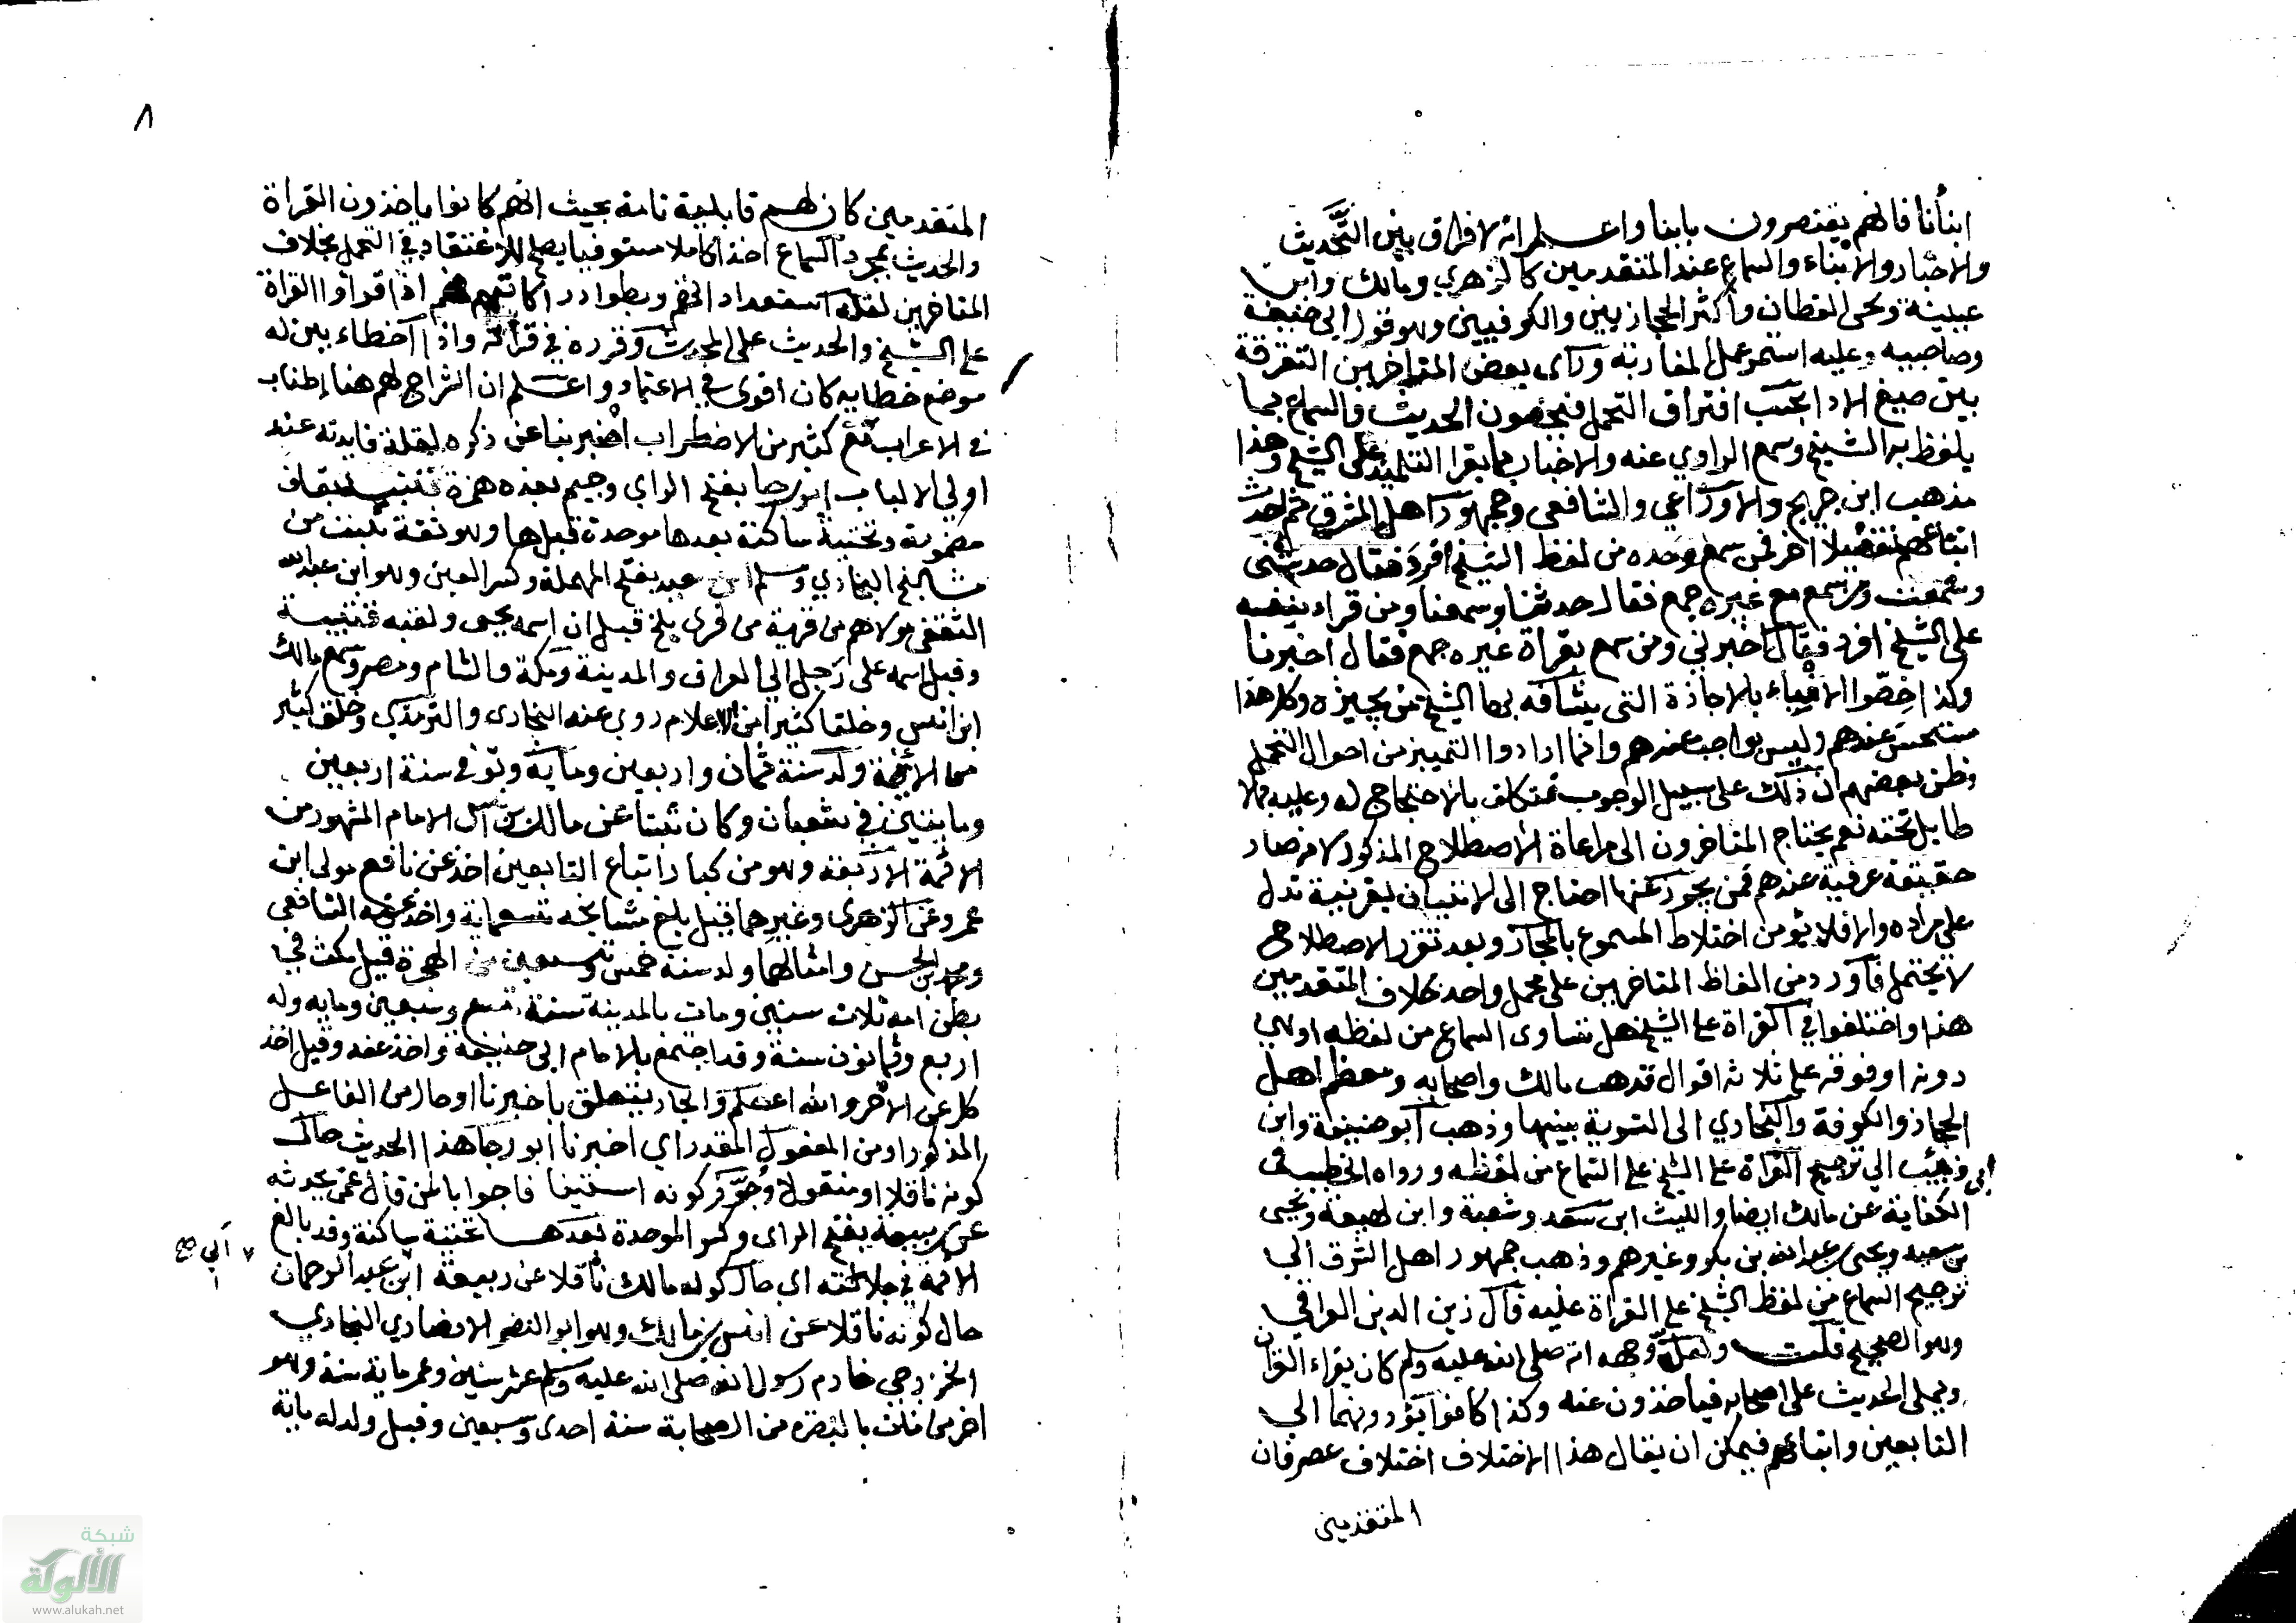 انبأنا فانهم يقتصرون بابنا واعلم انه لا فراق بين التَّحديث
والاخبار والانباء والسماع عند المتقدمين كالزهري ومالك وابن
عيينة ويحى القطان وأكثر الحجازيين والكوفيين وهو قول ابى حنيفة
وصاحبيه وعليه استمر عمل المغاربة ورأى بعض المتاخرين التفرقة
بين صيغ الادا بحسب افتراق التحمل فيخصون الحديث والسماع بما
يلفظ به الشيخ وسمع الراوي عنه والاخبار بما يقرا التلميذ على الشيخ وهذا
مذهب ابن جريج والاوزاعي والشافعى وجمهور اهل المشرق ثم احدث
اتباعهم تفصيلا اخر فمن سمع وحده من لفظ الشيخ افرد فقال حدثنى
وسمعت ومن سمع مع غيره جمع فقال حدثنا وسمعنا ومن قرا بنفسه
على الشيخ افرد فقال اخبرني ومن سمع بقراة غيره جمع فقال اخبرنا
وكذا خصّوا الانباء بالاجازة التى يشافه بها الشيخ من يجيزه وكل هذا
مستحسن عندهم وليس بواجب عندهم وانما ارادوا التمييز من احوال التحمل
وظن بعضهم ان ذلك على سبيل الوجوب فتكلف بالاحتجاج له وعليه بما لا
طايل تحته نعم يحتاج المتاخرون الى مراعاة الاصطلاح المذكور لانه صار
حقيقة عرفية عندهم فمن يجوز عنها احتاج الى الاتيان بقرينة تدل
على مراده والا فلا يؤمن اختلاط المسموع بالمجاز وبعد تقرر الاصطلاح
لا يحتمل فاورد من الفاظ المتاخرين على محمل واحد بخلاف المتقدمين
هذا واختلفوا في القراة على الشيخ هل تساوى السماع من لفظه او هي
دونه او فوقه على ثلاثه اقوال فذهب مالك واصحابه ومعظم اهل
الحجاز والكوفة والبخاري الى التسوية بينهما وذهب ابو حنيفة وابن
ابى ذئب الي ترجيح القراة على الشيخ على السماع من لفظه ورواه الخطيب فى
الكفاية عن مالك ايضا والليث ابن سعد وشعبة وابن لهيعة ويحيى
بن سعيد ويحى بن عبد الله بن بكر وغيرهم وذهب جمهور اهل الشرق الي
ترجيح السماع من لفظ الشيخ على القراة عليه قال زين الدين العراقي
وهو الصحيح قلت ولعلّ وجهه انه صلى الله عليه وسلم كان يقراء القران
ويملى الحديث على اصحابه فياخذون عنه وكذا كانوا يؤدونهما الي
التابعين واتباعهم فيمكن ان يقال هذا الاختلاف اختلاف عصر فان
المتقدمين
٨
المتقدمين كان لهم قابلية تامة بحيث انهم كانوا ياخذون القراة
والحديث بمجرد السماع اخذا كاملا مستوفيا يصلح للاعتقاد في التحمل بخلاف
المتاخرين لقلة استعداد الخ وبطوا ادراكاتهم فهم اذا قرأوا القراة
على الشيخ والحديث على المحدث وقرره في قرأته واذا اخطاء بين له
موضع خطايه كان اقوى في الاعتماد واعلم ان الشراح لهم هنا إطناب
في الاعراب مع كثير من الاضطراب اضربنا عن ذكره لقلة فايدته عند
اولي الالباب ابو رجا بفتح الراى وجيم بعده همزة قتيبة بقاف
مضمومة وتحتية ساكنة بعدها موحدة قبلها وهو ثقة ثبت من
مشايخ البخاري وسلم ابن سعيد بفتح المهملة وكسر العين وهو ابن عبد الله
الثقفى مولاهم من قرية من قرى بلخ قيل ان اسمه يحيى ولقبه قتيبة
وقيل اسمه على رحل الي العراق والمدينة ومكة والشام ومصر وسمع مالك
ابن انس وخلقا كثيرا من الاعلام روى عنه البخارى والترمذي وخلق كثير
من الائمة ولد سنة ثمان واربعين وماية وتوفى سنة اربعين
ومايتين في شعبان وكان ثبتا عن مالك بن انس الامام المشهور من
الائمة الاربعة وهو من كبار اتباع التابعين اخذ عن نافع مولى ابن
عمر وعن الزهرى وغيرهما قيل بلغ مشايخه تسعماية واخذ عنه الشافعي
ومحمد بن الحسن وامثالهما ولد سنة خمس وتسعين من الهجرة قيل مكث في
بطن امه ثلاث سنين ومات بالمدينة سنة تسع وسبعين وماية وله
اربع وثمانون سنة وقد اجتمع بالامام ابى حنيفة واخذ عنه وقيل اخذ
كل عن الاخر والله اعلم والجار يتعلق باخبرنا او حال من الفاعل
المذكور او من المفعول المقدر اي اخبرنا ابو رجا هذا الحديث حال
كونه ناقلا او منقولا وجوّز كونه استينافا جوابا لمن قال عمن يحدثه
عن ربيعة بفتح الراى وكسر الموحدة بعدها تحتية ساكنة وقد بالغ
الائمة في جلالته اي حال كونه مالك ناقلا عن ربيعة ابن عبد الرحمان
٧ ابي صح
حال كونه ناقلا عن انس بن مالك وهو ابو النضر الانصاري النجاري
الخزرجي خادم رسول الله صلى الله عليه وسلم عشر سنين وعمر ماية سنة وهو
اخر من مات بالبصره من الصحابة سنة احدى وتسعين وقيل ولد له ماية
شبكة
الألوكة
www.alukah.net